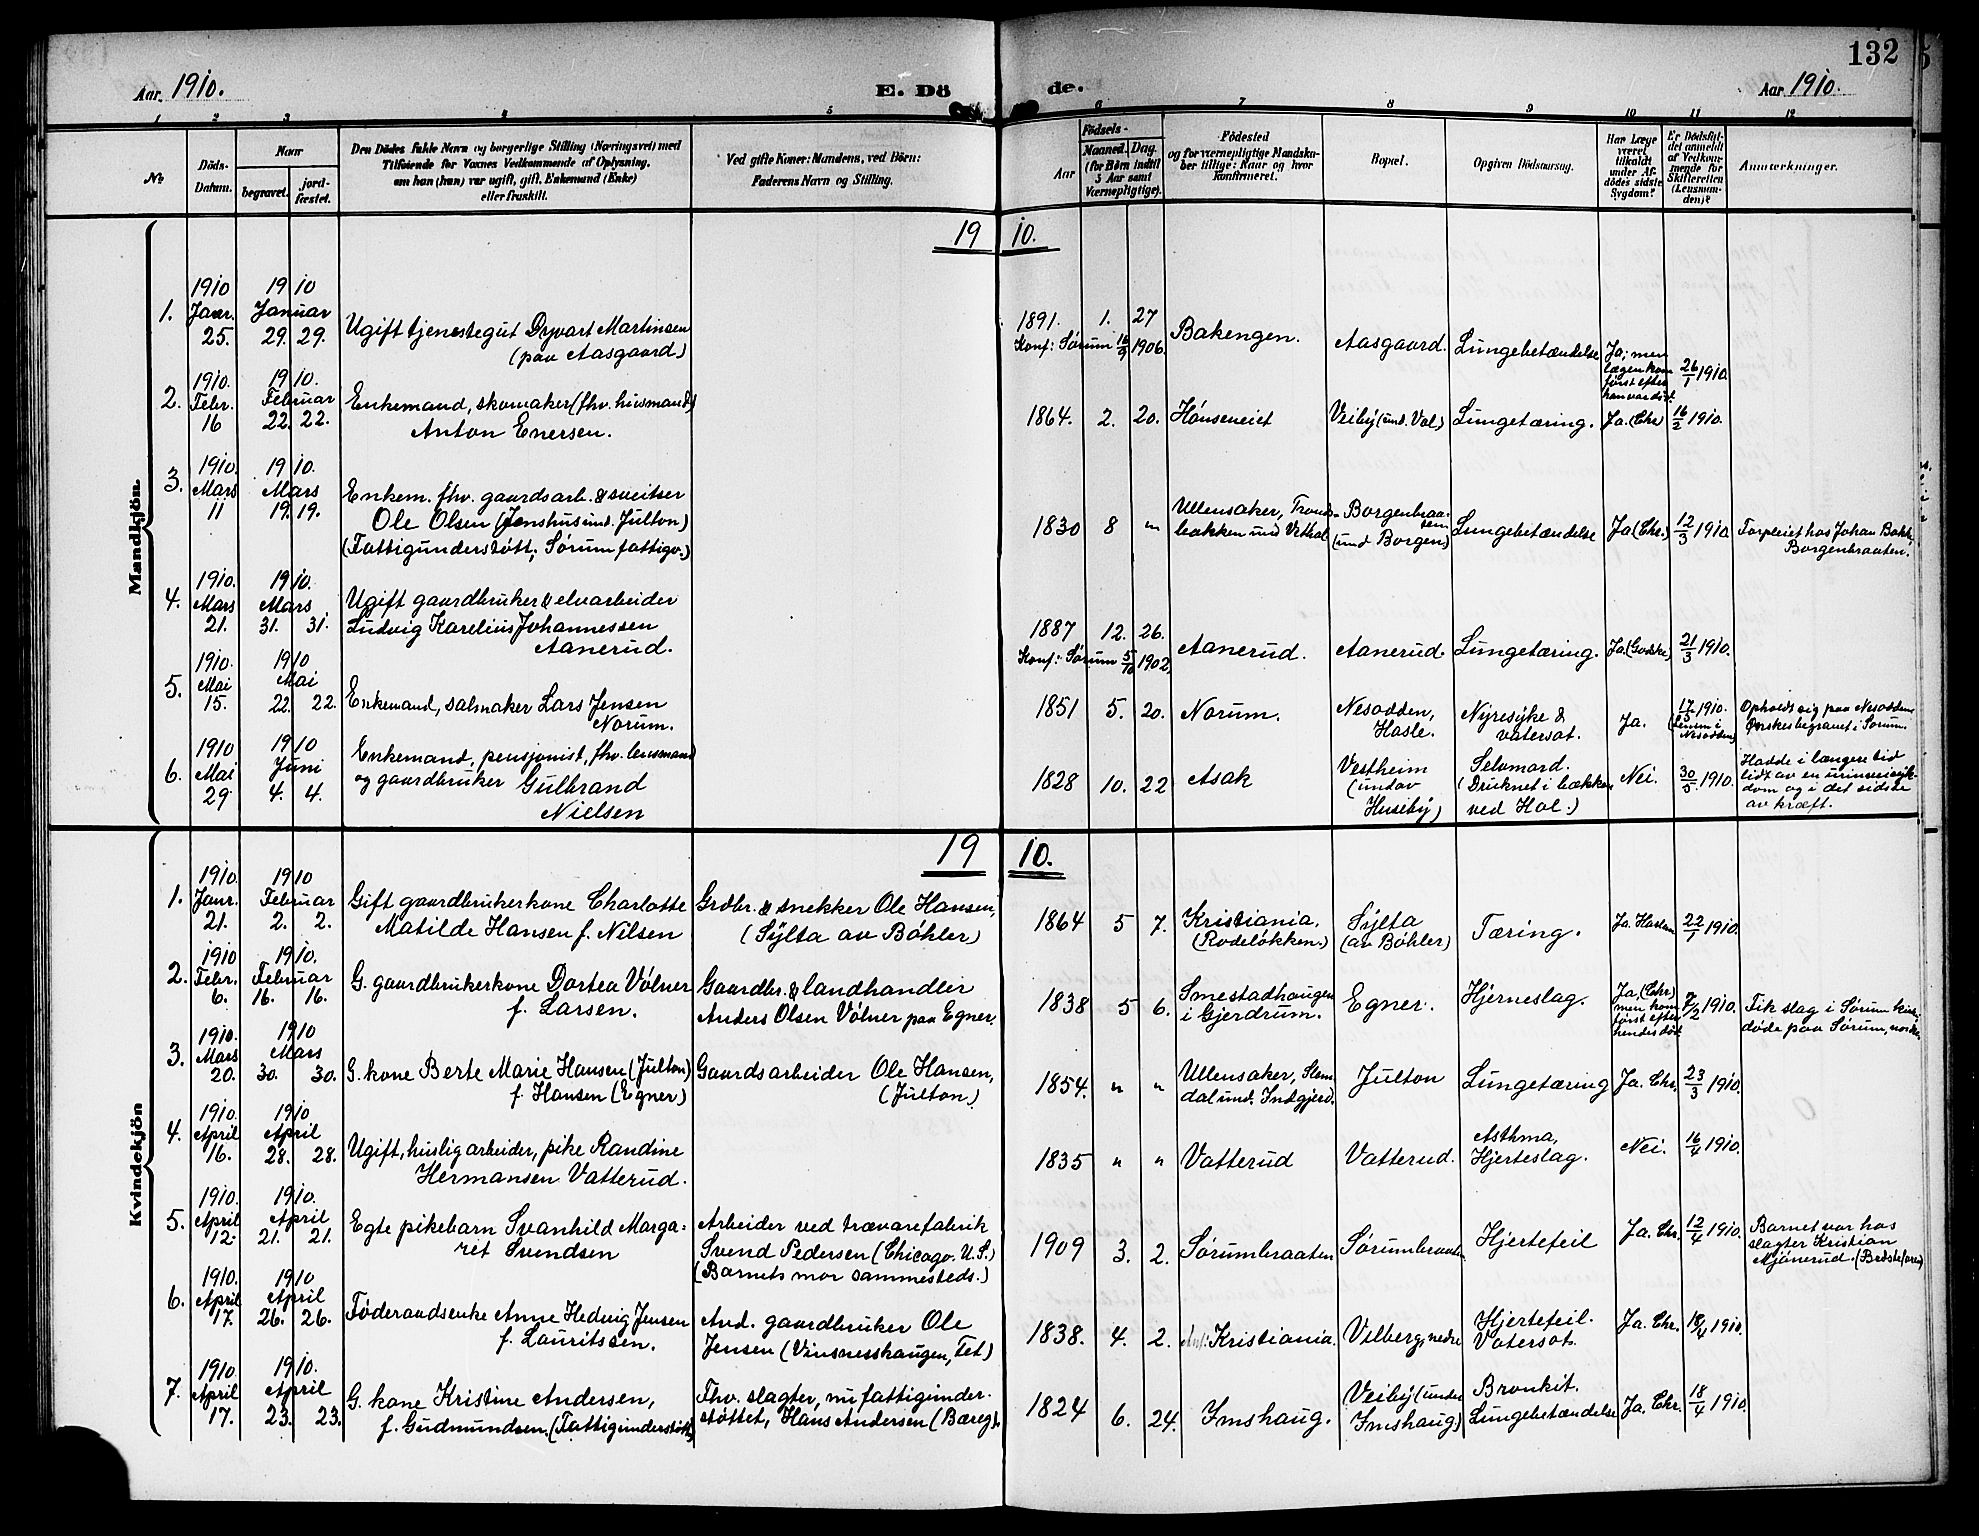 132
Aar 1910.
E. Dö
de.
Aar 1910.
1 2 3 4 5 6 7 8 9 10 11 12
No
Döds-
Datum.
Naar
begravet.
jord-
fæstet.
Den Dödes fulde Navn og borgerlige Stilling (Næringsvei) med
Tilföiende for Voxnes Vedkommende af Oplysning,
om han (hun) var ugift, gift, Enkemand (Enke)
eller fraskilt.
Ved gifte Koner: Mandens, ved Börn:
Faderens Navn og Stilling.
Födsels-
Aar
Maaned. Dag.
(for Börn indtil
5 Aar samt
Værnepligtige).
Födested
og for værnepligtige Mandska-
ber tillige: Naar og hvor
konfirmeret.
Bopæl.
Opgiven Dödsaarsag.
Har Læge
været
tilkaldt
under Af-
dödes sidste
Sygdom?
Er Dödsfal-
det anmeldt
af Vedkom-
mende for
Skifteretten
(Lensman-
den)?
Anmærkninger.
Mandkjön.
19 10.
1.
1910 Janr. 25.
1910 Januar 29. 29.
Ugift tjenestegut Dyvart Martinsen
(paa Aasgaard)
1891. 1. 27
Konf: Sørum 16/9 1906.
Bakengen.
Aasgaard.
Lungebetændelse
Ja; men
lægen kom
først efter
han var død.
26/1 1910.
2.
1910. Febr. 16
1910. Februar 22. 22.
Enkemand, skomaker (fhv. husmand)
Anton Enersen.
1864. 2. 20.
Hónseneiet
Veiby (und. Val)
Lungetæring.
Ja. (Chr)
16/2 1910.
3.
1910. Mars 11
1910. Mars 19. 19.
Enkem. fhv. gaardsarb. & sveitser
Ole Olsen (Jonshus und. Julton)
(Fattigunderstøtt; Sørum fattigv.)
1830 8 "
Ullensaker, Trond-
bakken und Vethal
Borgenbraa-
ten
(und Borgen)
Lungebetændelse
Ja (Chr.)
12/3 1910
Forpleiet hos Johan Bakk,
Borgenbraaten.
4.
1910. Mars 21.
1910. Mars 31. 31.
Ugift gaardbruker & elvarbeider
Ludvig Karelius Johannessen
Aanerud.
1887 12. 26.
Konf: Sørum 5/10 1902,
Aanerud.
Aanerud.
Lungetæring.
Ja. (Godske)
21/3 1910.
5.
1910. Mai 15.
1910 Mai 22. 22.
Enkemand, salmaker Lars Jensen
Norum.
1851 5. 20.
Norum.
Nesodden,
Hasle.
Nyresyke &
vatersot.
Ja.
17/5 1910.
(Lensm i
Nesodden)
Opholdt sig paa Nesodden
Ønskes begravet i Sørum.
6.
1910 Mai 29.
1910 Juni 4. 4.
Enkemand, pensjonist, fhv. lensmand
og gaardbruker Gulbrand
Nielsen
1828 10. 22
Asak
Vestheim
(undav
Huseby)
Selvmord.
(Druknet i bækken
ved Hol.)
Nei.
30/5 1910.
Hadde i længere tid
lidt av en urinveissyk-
dom og i det sidste
av kræft.
Kvindekjön
19 10.
1.
1910. Janr. 21.
1910 Februar 2. 2.
Gift gaardbrukerkone Charlotte
Matilde Hansen f. Nilsen
Grdbr. & snekker Ole Hansen,
(Sylta av Bøhler)
1864 5 7.
Kristiania,
(Rodeløkken.)
Sylta
(av Bøhler)
Tæring.
Ja. Haslum
22/1 1910.
2.
1910 Febr. 6.
1910. Februar 16. 16.
G. gaardbrukerkone Dortea Vólner
f. Larsen.
Gaardbr. & landhandler
Anders Olsen Vólner paa Egner.
1838 5 6.
Smestadhaugen
i Gjerdrum.
Egner.
Hjerneslag.
Ja, (Chr)
men kom
først efter
hendes død
7/2 1910.
Fik slag i Sørum kirke,
døde paa Sørum, norske.
3.
1910. Mars 20.
1910 Mars 30. 30.
G. kone Berte Marie Hansen (Julton)
f. Hansen (Egner)
Gaardsarbeider Ole Hansen,
(Julton)
1854. " "
Ullensaker, Slem-
dal und. Indgjerd.
Julton
Lungetæring
Ja. Chr.
23/3 1910.
4.
1910. April 16.
1910. April 28. 28.
Ugift, huslig arbeider, pike Randine
Hermansen Vatterud.
1835 " "
Vatterud
Vatterud.
Asthma,
Hjerteslag.
Nei.
16/4 1910.
5.
1910. April 12.
1910. April 21. 21.
Egte pikebarn Svanhild Marga-
ret Svendsen
Arbeider ved trævarefabrik
Svend Pedersen (Chicago. U.S.)
(Barnets mor sammesteds.)
1909 3. 2.
Sørumbraaten
Sørumbraaten
Hjertefeil
Ja. Chr.
12/4 1910.
Barnet var hos
slagter Kristian
Mjønerud.
6.
1910. April 17.
1910 April 26. 26.
Føderaadsenke Anne Hedvig Jensen
f. Lauritssen.
And. gaardbruker Ole
Jensen (Vinsnesshaugen, Fet)
1838. 4. 2.
Kristiania.
Velberg, nedre
Hjertefeil.
Vatersot.
Ja. Chr.
18/4 1910.
7.
1910. April 17.
1910. April 23. 23.
G. kone Kristine Andersen,
f. Gudmundsen. (Fattigunderstøtt)
Fhv. slagter, nu fattigunder-
støttet, Hans Andersen (Bæreg).
1824 6. 24.
Imshaug.
Veiby (under
Imshaug)
Bronkit.
Lungebetændelse
Ja. Chr.
18/4 1910.